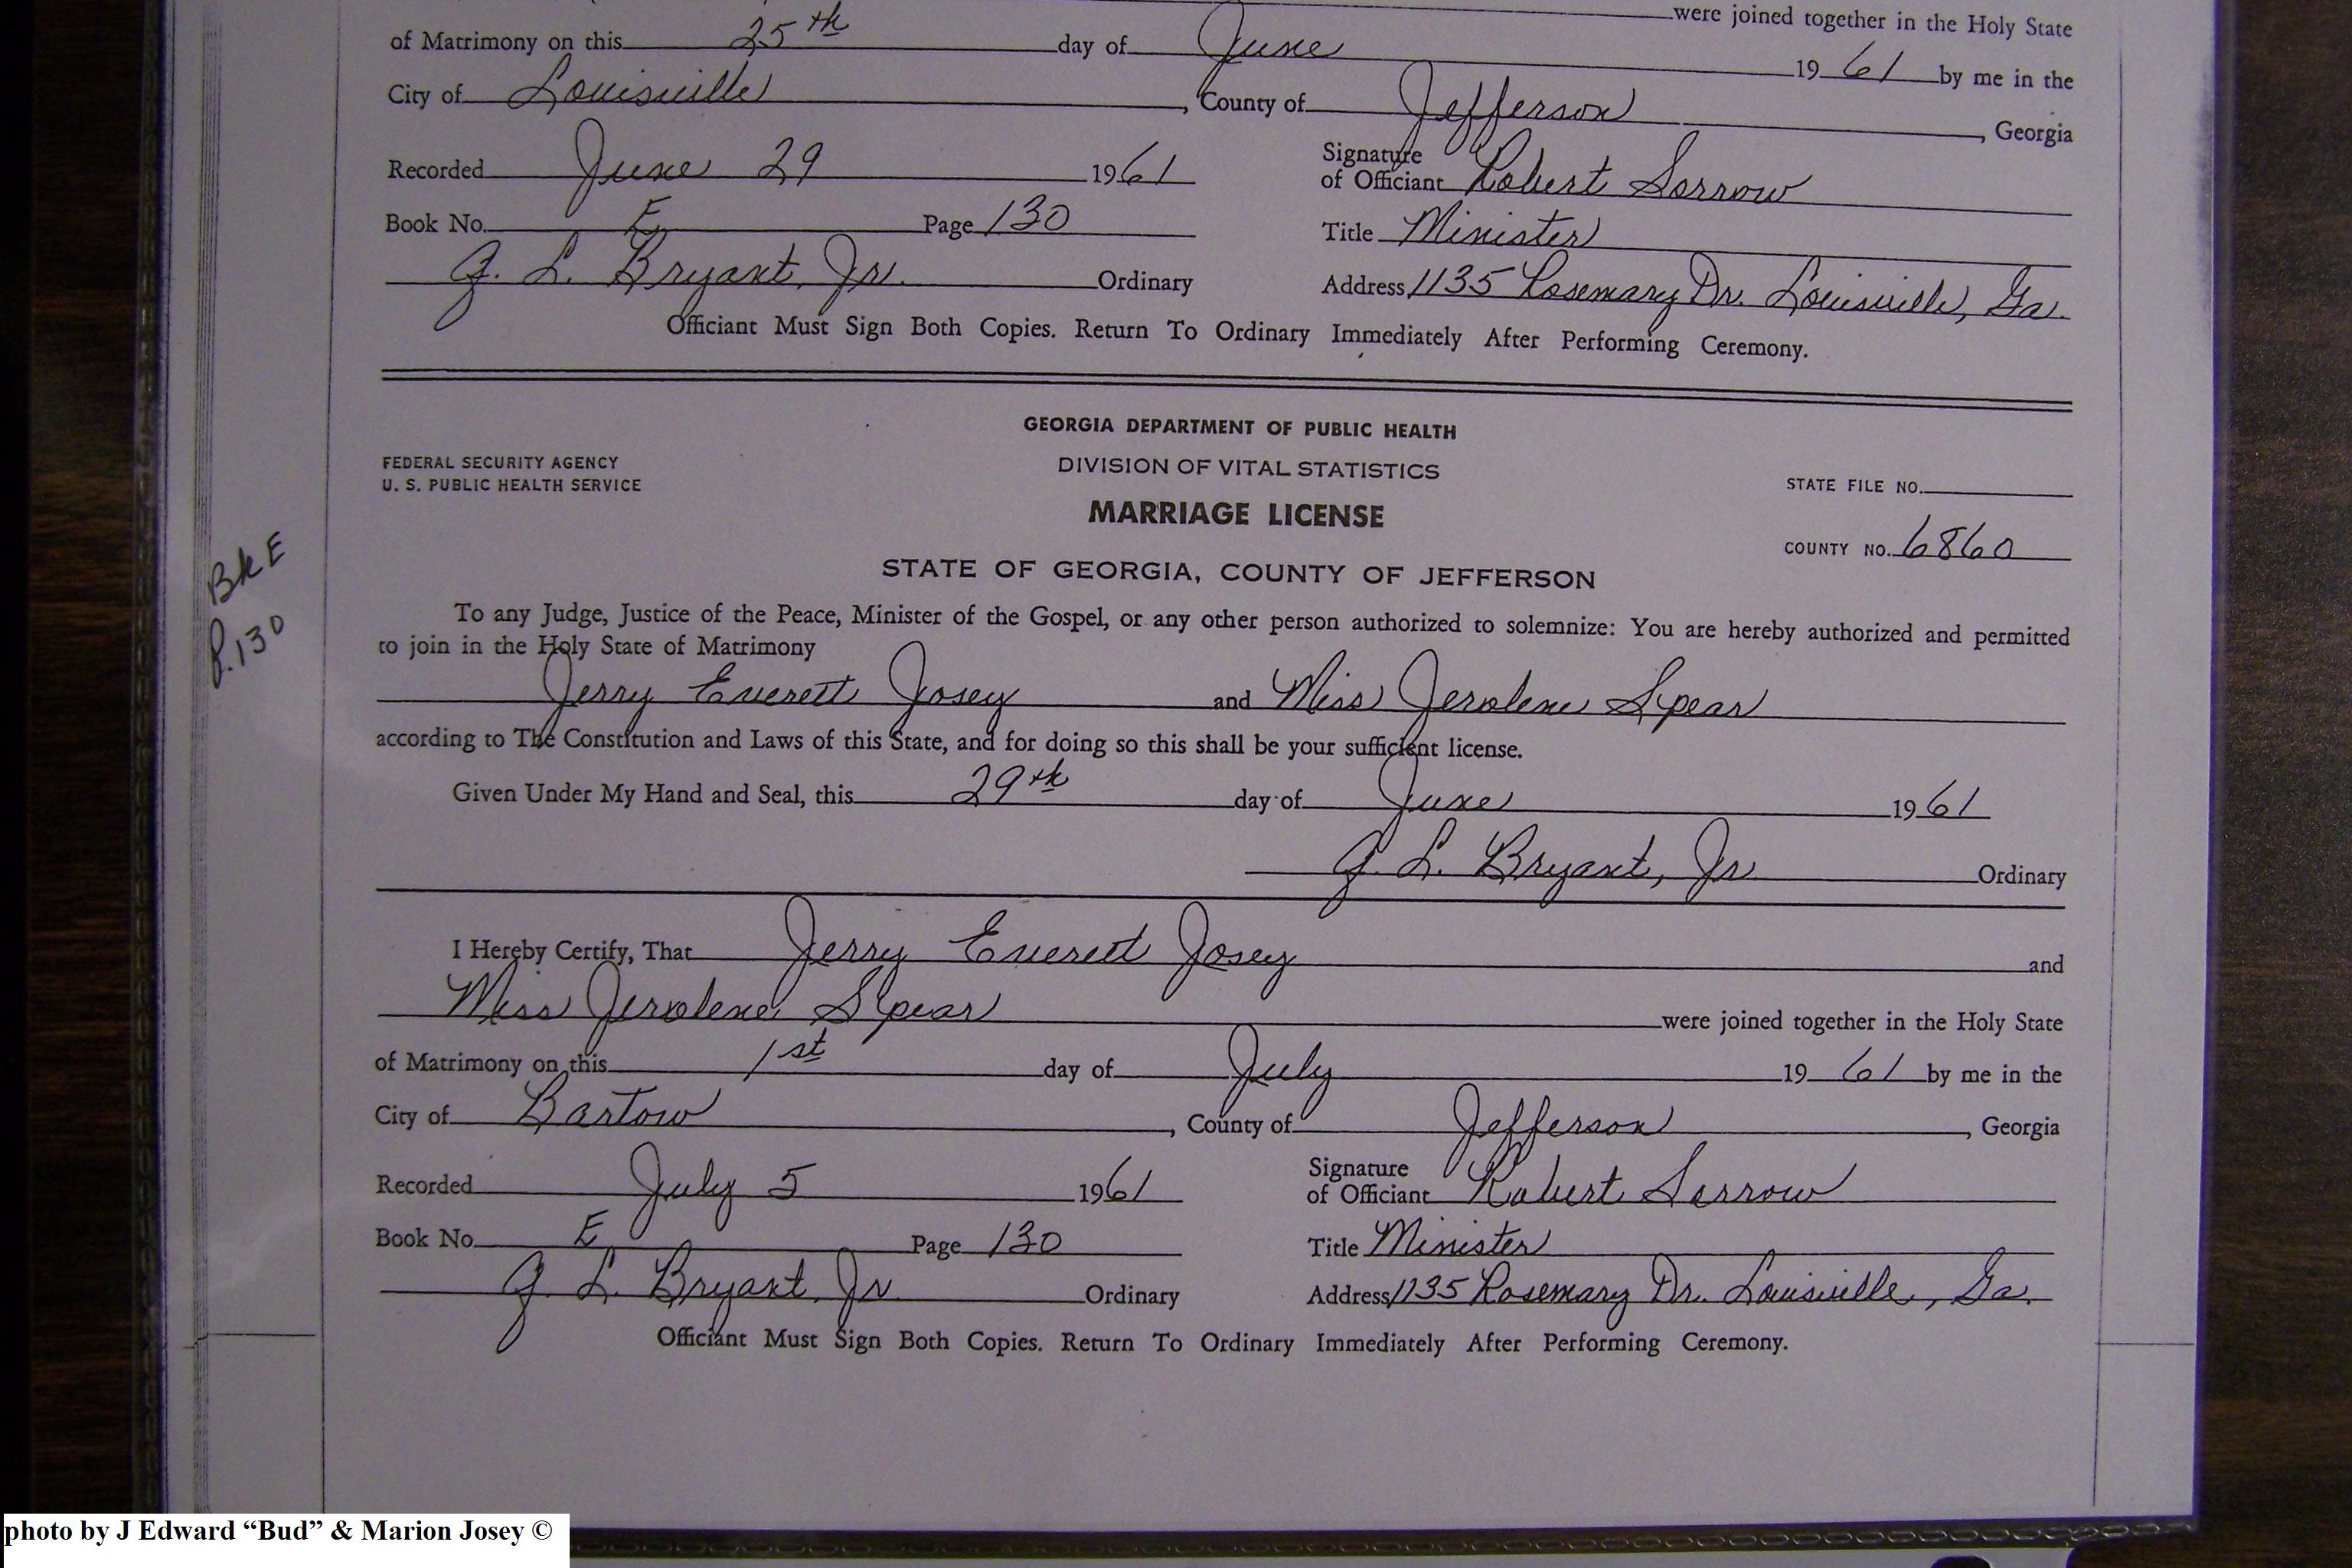 were joined together in the Holy State
of Matrimony on this 25th day of June 19 61 by me in the
City of Louisville, County of Jefferson, Georgia
Recorded June 29 1961 Signature of Officiant Robert Sorrow
Book No. E Page 130 Title Minister
Q. L. Bryant, Jr. Ordinary Address 1135 Rosemary Dr. Louisville, Ga.
Officiant Must Sign Both Copies. Return To Ordinary Immediately After Performing Ceremony.
GEORGIA DEPARTMENT OF PUBLIC HEALTH
FEDERAL SECURITY AGENCY DIVISION OF VITAL STATISTICS
U. S. PUBLIC HEALTH SERVICE STATE FILE NO.
MARRIAGE LICENSE
COUNTY NO. 6860
STATE OF GEORGIA, COUNTY OF JEFFERSON
Bk E
P. 130
To any Judge, Justice of the Peace, Minister of the Gospel, or any other person authorized to solemnize: You are hereby authorized and permitted
to join in the Holy State of Matrimony
Jerry Everett Josey and Miss Jerolene Spear
according to The Constitution and Laws of this State, and for doing so this shall be your sufficient license.
Given Under My Hand and Seal, this 29th day of June 1961
Q. L. Bryant, Jr. Ordinary
I Hereby Certify, That Jerry Everett Josey and
Miss Jerolene Spear were joined together in the Holy State
of Matrimony on this 1st day of July 19 61 by me in the
City of Bartow, County of Jefferson, Georgia
Recorded July 5 1961 Signature of Officiant Robert Sorrow
Book No. E Page 130 Title Minister
Q. L. Bryant, Jr. Ordinary Address 1135 Rosemary Dr. Louisville, Ga.
Officiant Must Sign Both Copies. Return To Ordinary Immediately After Performing Ceremony.
photo by J Edward “Bud” & Marion Josey ©